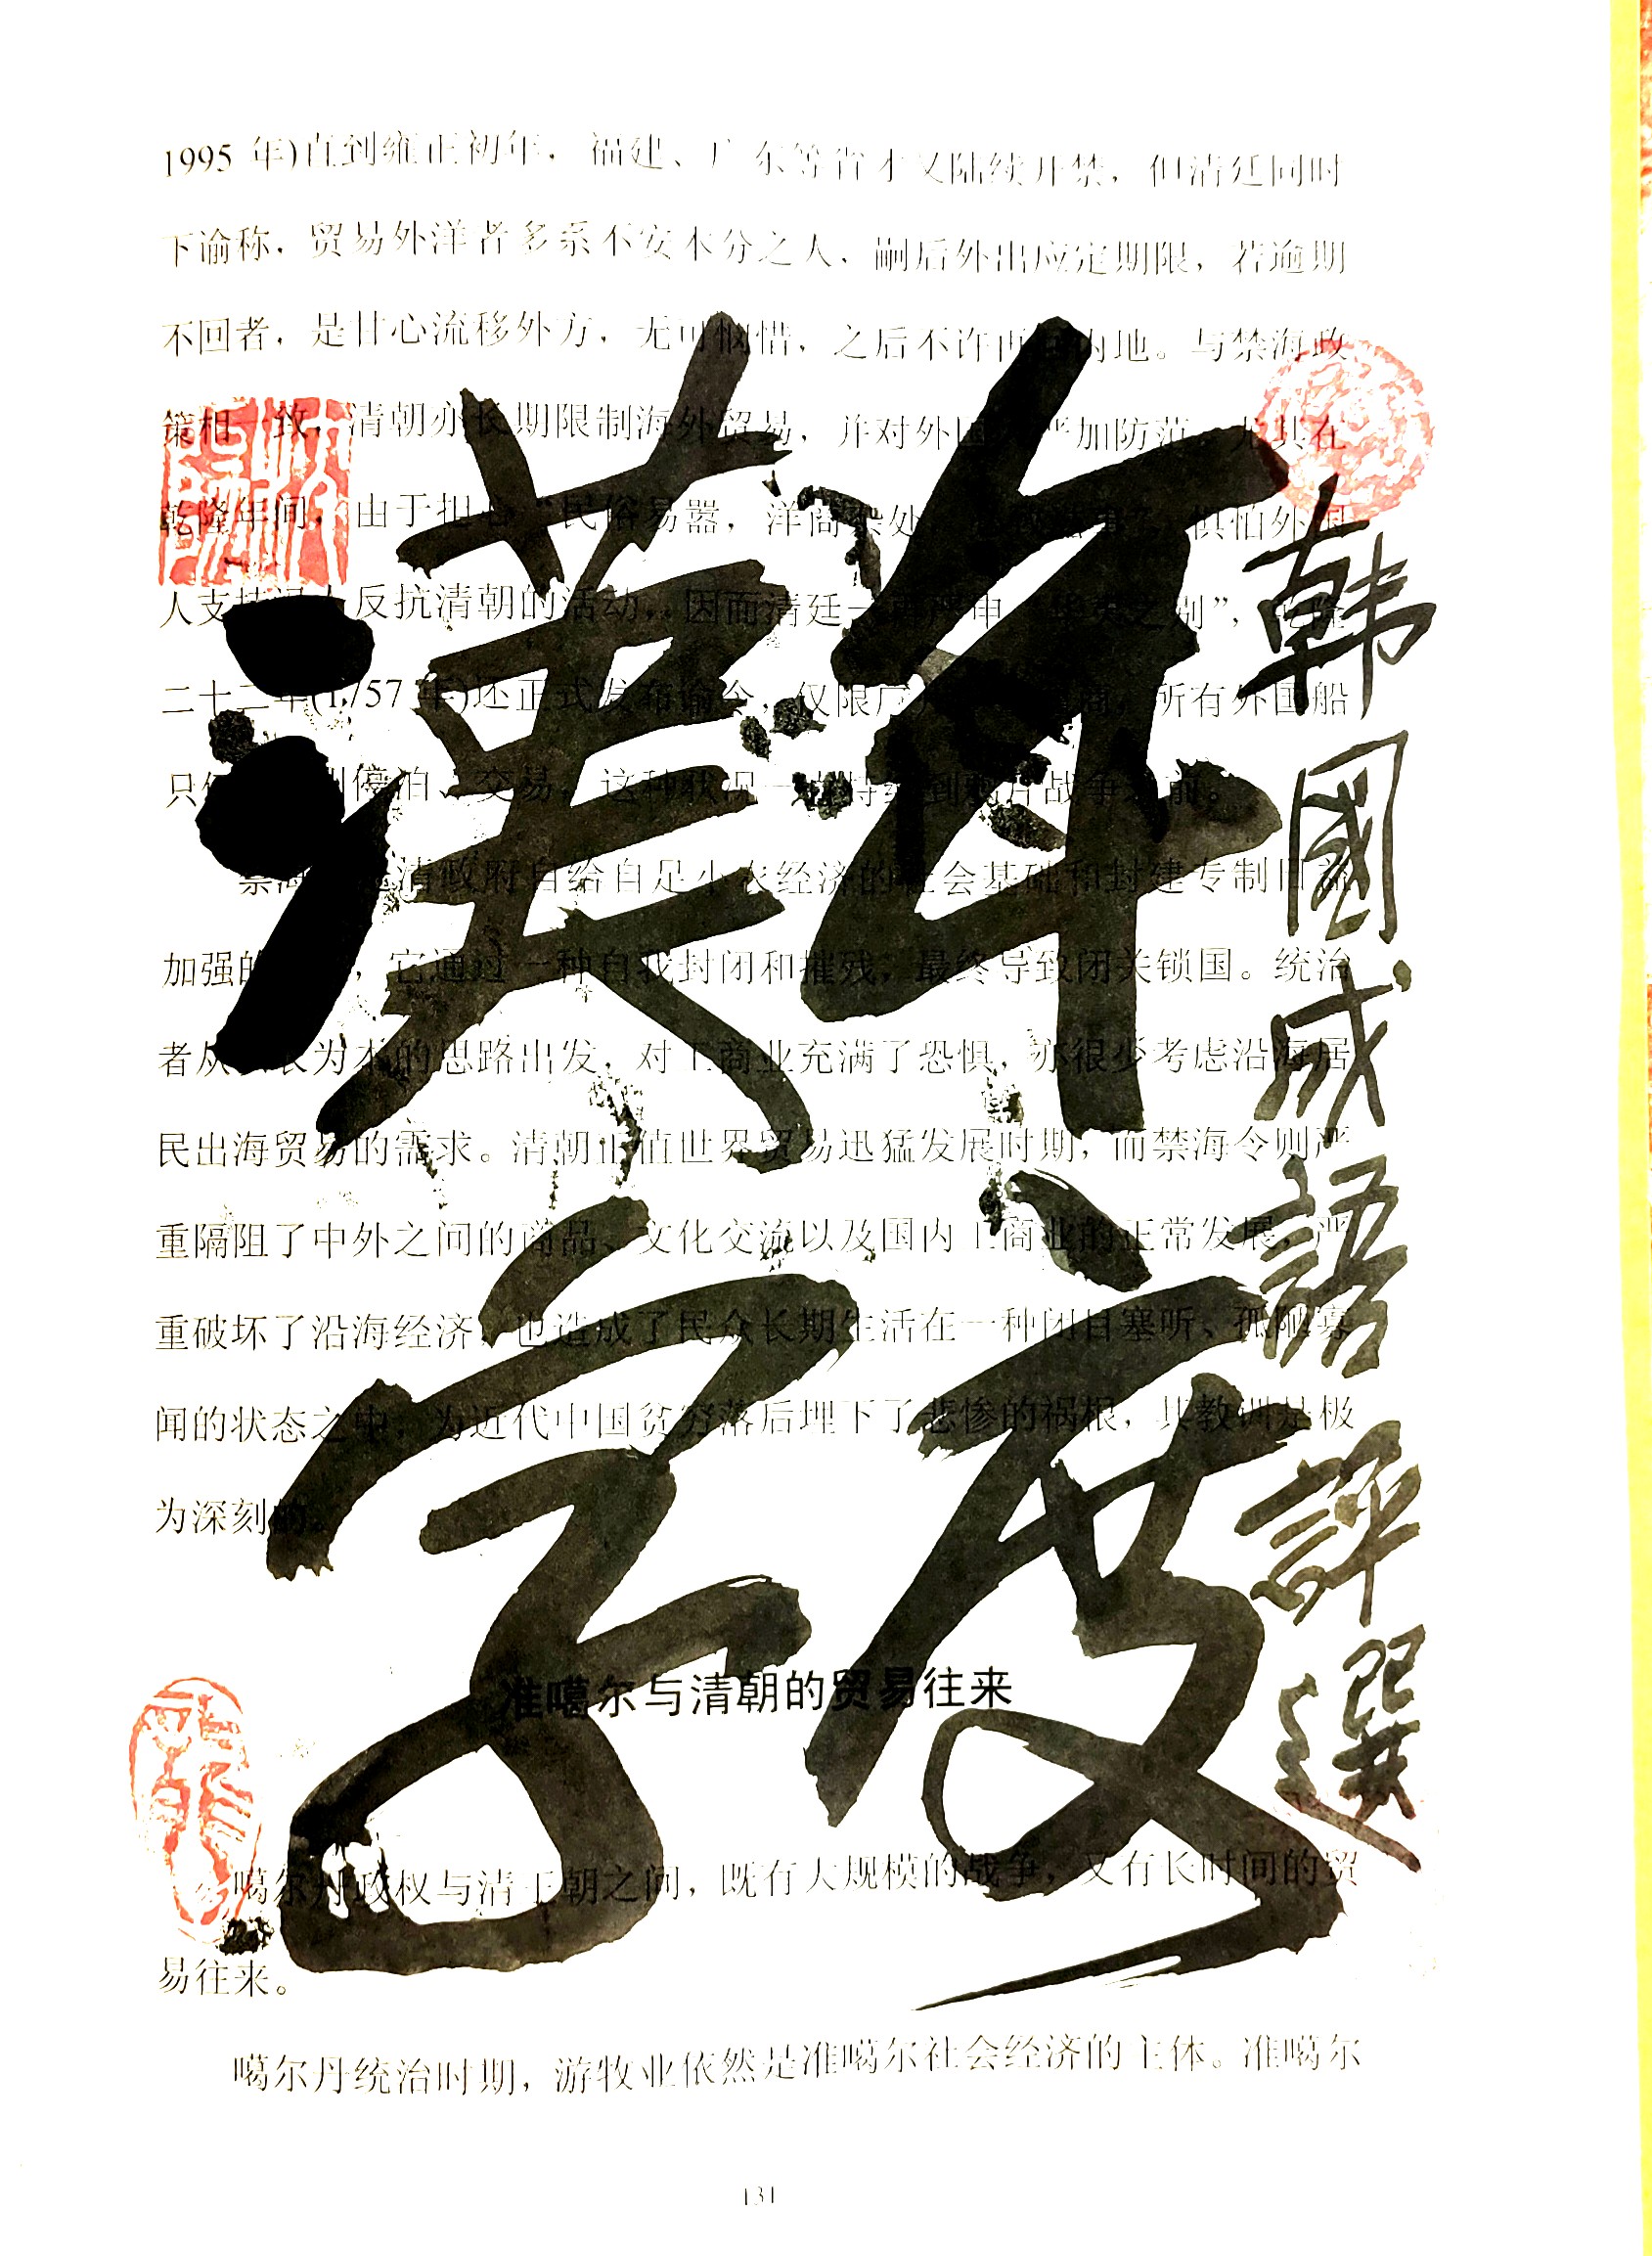 年度
漢字
韓國成語評選
1995 年)直到雍正初年，福建、广东等省才又陆续开禁，但清廷同时
下谕称，贸易外洋者多系不安本分之人，嗣后外出应定期限，若逾期
不回者，是甘心流移外方，无可悯惜，之后不许内地。与禁海政
策相一致，清朝亦长期限制海外贸易，并对外国严加防范，尤其在
乾隆年间，由于担心“民俗易嚣，洋商杂处，惧怕外国
人支持反抗清朝的活动，因而清廷一再严申“华夷之别”，乾隆
二十二年(1757年)还正式发布谕令，仅限广所有外国船
只停泊、交易，这种状况一直持续到鸦片战争之前。
禁海是清政府自给自足小农经济的社会基础和封建专制日益
加强的，它通过一种自我封闭和摧残，最终导致闭关锁国。统治
者从农为本的思路出发，对工商业充满了恐惧，亦很少考虑沿海居
民出海贸易的需求。清朝正值世界贸易迅猛发展时期，而禁海令则严
重隔阻了中外之间的商品、文化交流以及国内工商业的正常发展，严
重破坏了沿海经济，也造成了民众长期生活在一种闭目塞听、孤陋寡
闻的状态之中，为近代中国贫穷落后埋下了悲惨的祸根，其教训是极
为深刻的。
准噶尔与清朝的贸易往来
噶尔丹政权与清王朝之间，既有大规模的战争，又有长时间的贸
易往来。
噶尔丹统治时期，游牧业依然是准噶尔社会经济的主体。准噶尔
131